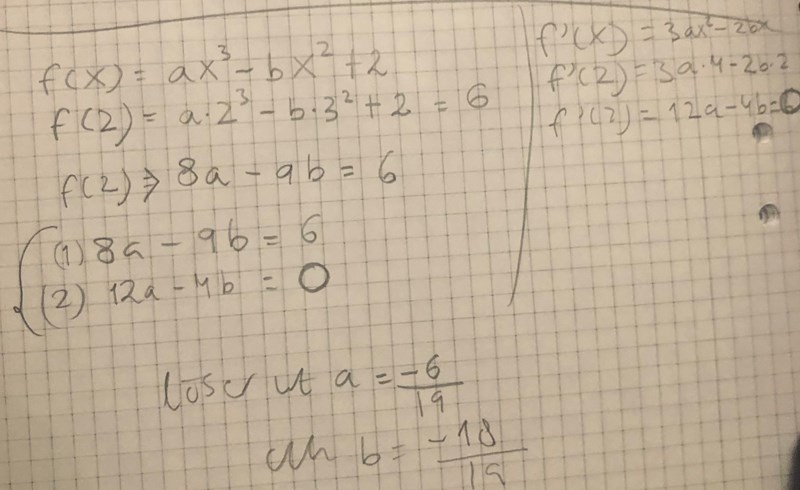 f(x) = ax³ - bx² + 2
f(2) = a·2³ - b·3² + 2 = 6
f(2) ⇒ 8a - 9b = 6
(1) 8a - 9b = 6
(2) 12a - 4b = 0
löser ut a = -6/19
och b = -18/19
f'(x) = 3ax² - 2bx
f'(2) = 3a·4 - 2b·2
f'(2) = 12a - 4b = 0